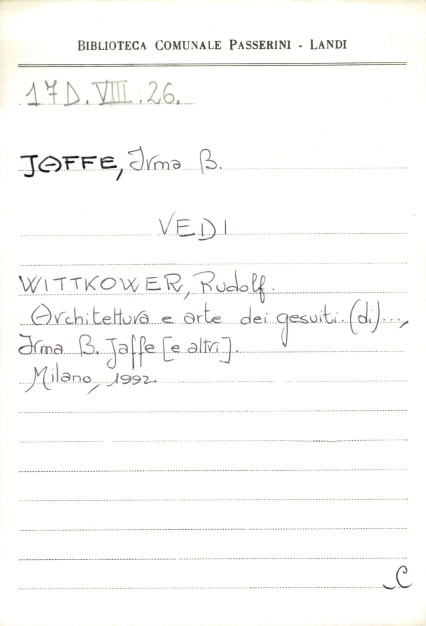 BIBLIOTECA COMUNALE PASSERINI - LANDI
17D.VIII.26.
JAFFE, Irma B.
VEDI
WITTKOWER, Rudolf.
Architettura e arte dei gesuiti. (di)...,
Irma B. Jaffe [e altri].
Milano, 1992.
C